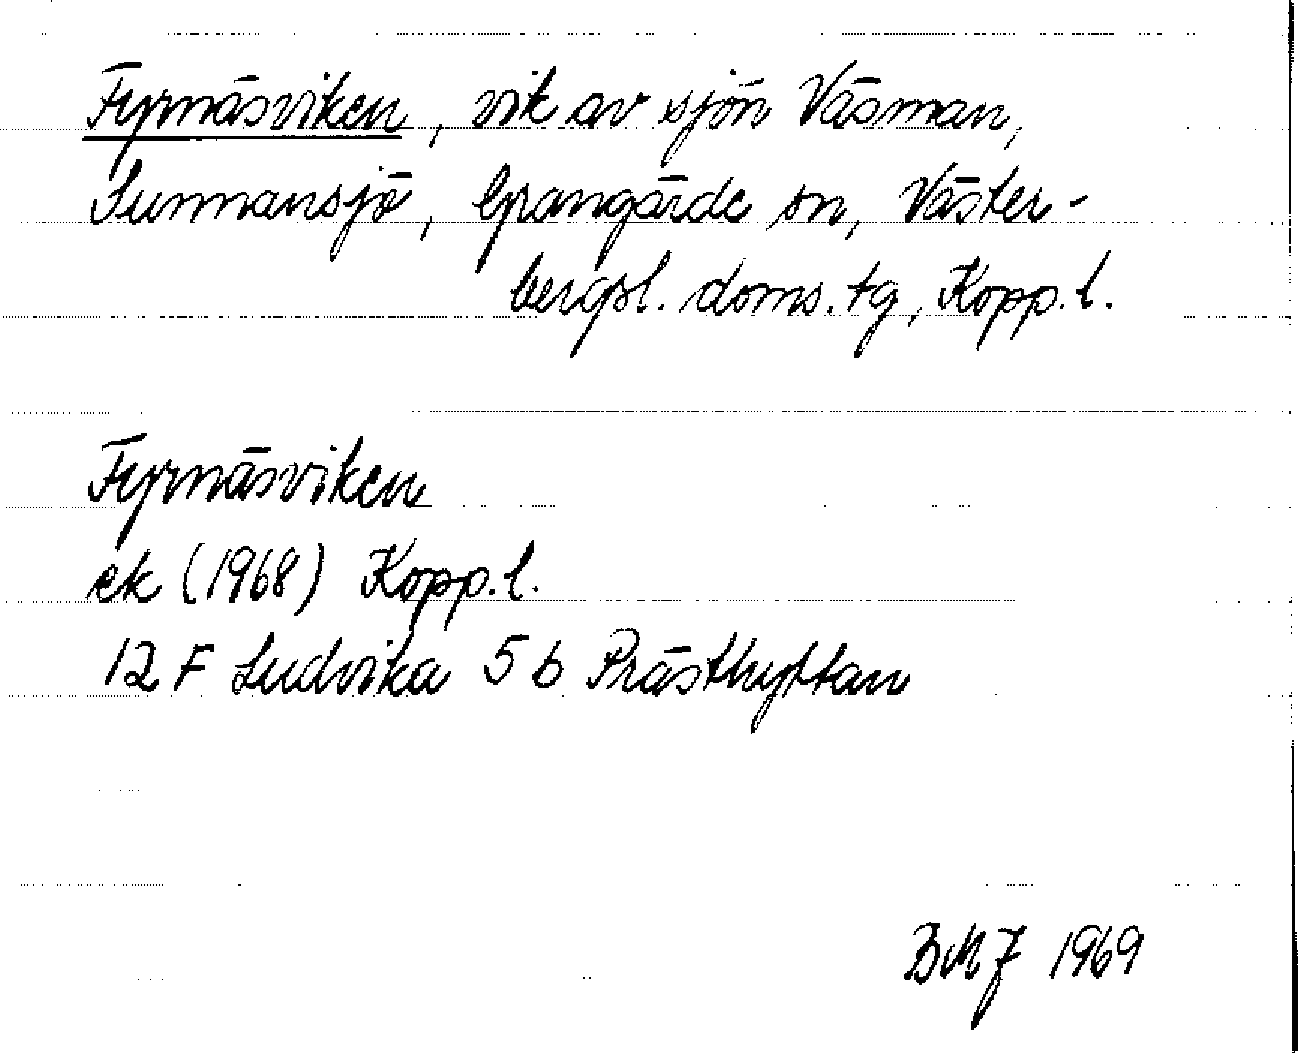 Fyrnäsviken, vik av sjön Väsman,
Sunnansjö, Grangärde sn, Väster-
bergsl. doms. tg, Kopp. l.
Fyrnäsviken
ek (1968) Kopp. l.
12 F Ludvika 5 b Prästhyttan
BMJ 1969